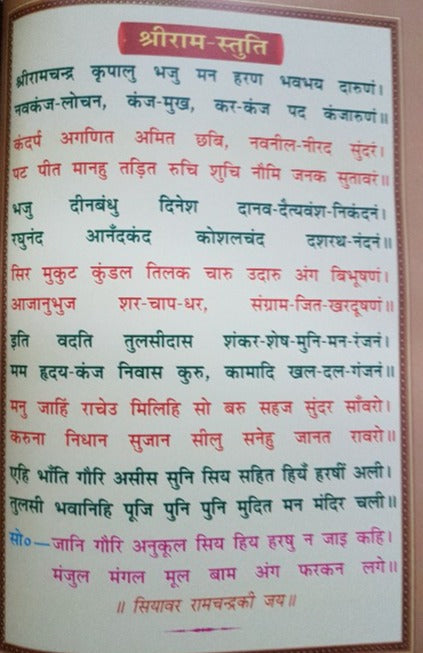 श्रीराम-स्तुति
श्रीरामचन्द्र कृपालु भजु मन हरण भवभय दारुणं।
नवकंज-लोचन, कंज-मुख, कर-कंज पद कंजारुणं॥
कंदर्प अगणित अमित छबि, नवनील-नीरद सुंदरं।
पट पीत मानहु तड़ित रुचि शुचि नौमि जनक सुतावरं॥
भजु दीनबंधु दिनेश दानव-दैत्यवंश-निकंदनं।
रघुनंद आनँदकंद कोशलचंद दशरथ-नंदनं॥
सिर मुकुट कुंडल तिलक चारु उदारु अंग बिभूषणं।
आजानुभुज शर-चाप-धर, संग्राम-जित-खरदूषणं॥
इति वदति तुलसीदास शंकर-शेष-मुनि-मन-रंजनं।
मम हृदय-कंज निवास कुरु, कामादि खल-दल-गंजनं॥
मनु जाहिं राचेउ मिलिहि सो बरु सहज सुंदर साँवरो।
करुना निधान सुजान सीलु सनेहु जानत रावरो॥
एहि भाँति गौरि असीस सुनि सिय सहित हियँ हरषीं अली।
तुलसी भवानिहि पूजि पुनि पुनि मुदित मन मंदिर चली॥
सो०—जानि गौरि अनुकूल सिय हिय हरषु न जाइ कहि।
मंजुल मंगल मूल बाम अंग फरकन लगे॥
॥ सियावर रामचन्द्रकी जय॥